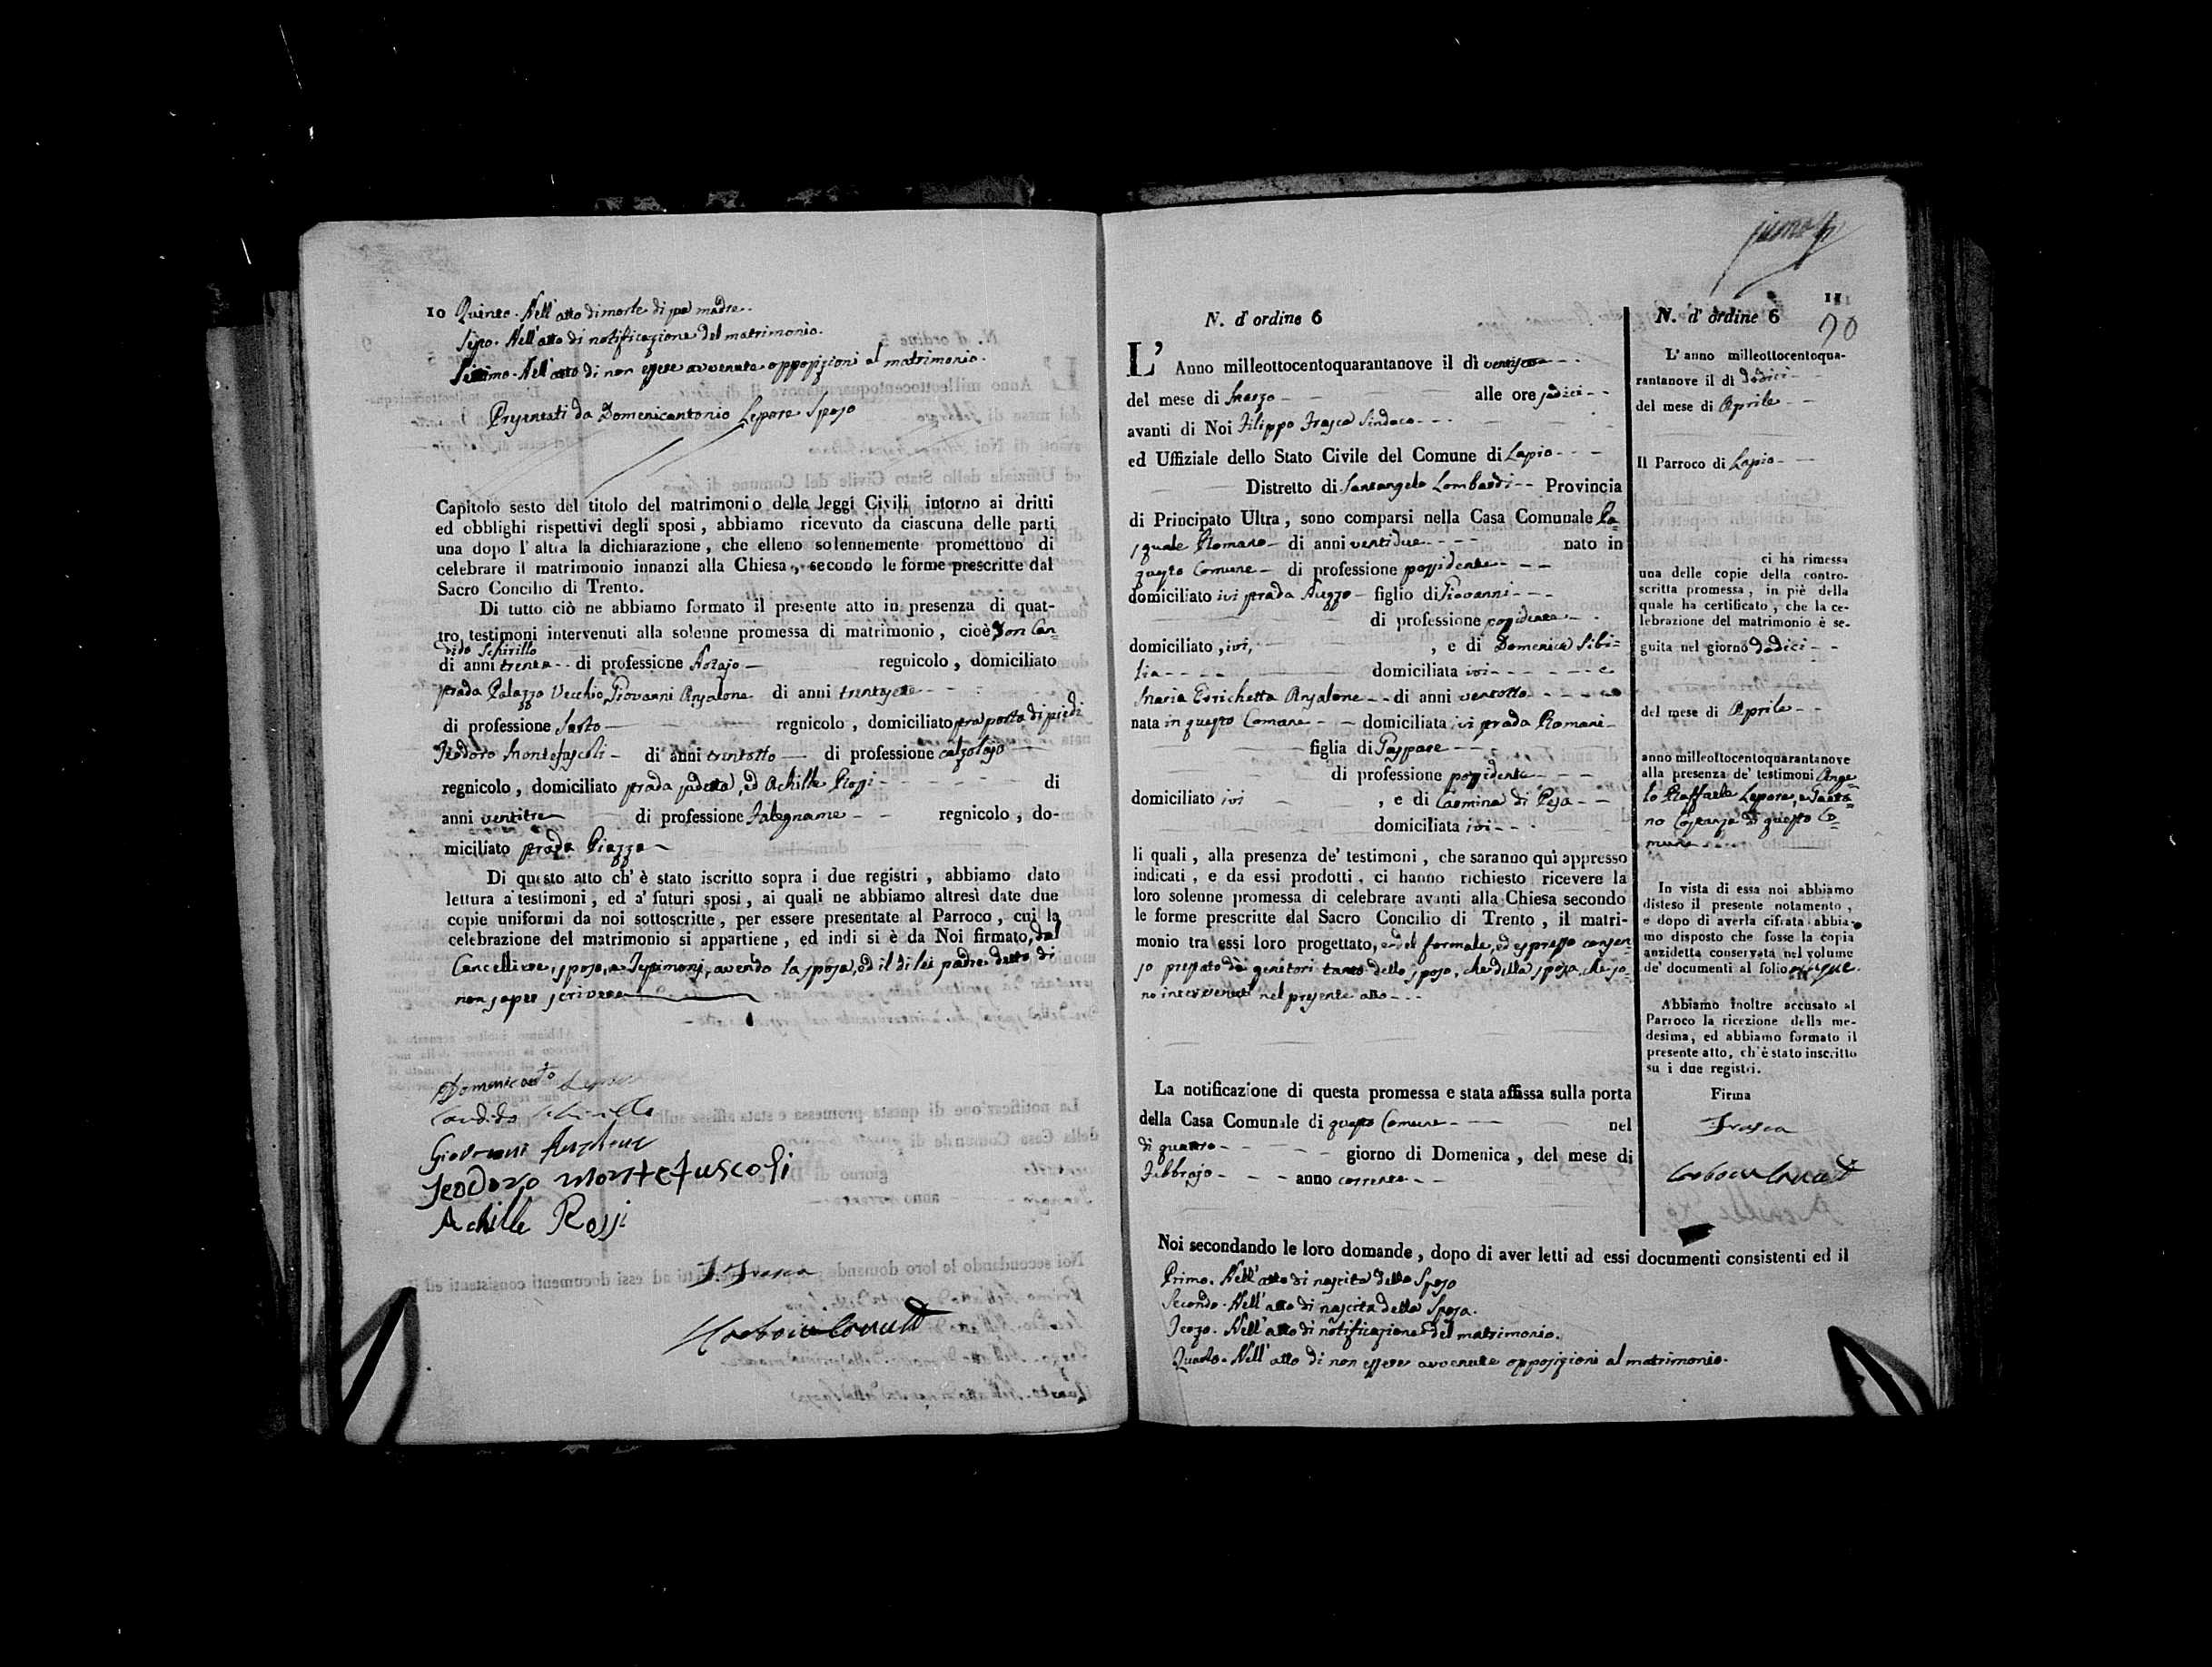 10 Quinto. Nell'atto di morte di sua madre.
Sesto. Nell'atto di notificazione del matrimonio.
Settimo. Nell'atto di non essere avvenute opposizioni al matrimonio.
Presentati da Domenicantonio Lepore Sposo
Capitolo sesto del titolo del matrimonio delle leggi Civili intorno ai dritti
ed obblighi rispettivi degli sposi, abbiamo ricevuto da ciascuna delle parti
una dopo l'altra la dichiarazione, che elleno solennemente promettono di
celebrare il matrimonio innanzi alla Chiesa, secondo le forme prescritte dal
Sacro Concilio di Trento.
Di tutto ciò ne abbiamo formato il presente atto in presenza di quat-
tro testimoni intervenuti alla solenne promessa di matrimonio, cioè Don Can-
dido Schirillo
di anni trenta di professione Notajo regnicolo, domiciliato
strada Palazzo Vecchio, Giovanni Anzalone di anni trentasette
di professione Sarto regnicolo, domiciliato strada porta di piedi
Teodoro Montefuscoli di anni trentotto di professione calzolajo
regnicolo, domiciliato strada sudetta, ed Achille Rossi di
anni ventitre di professione Falegname regnicolo, do-
miciliato strada Piazza
Di questo atto ch'è stato iscritto sopra i due registri, abbiamo dato
lettura a' testimoni, ed a' futuri sposi, ai quali ne abbiamo altresì date due
copie uniformi da noi sottoscritte, per essere presentate al Parroco, cui la
celebrazione del matrimonio si appartiene, ed indi si è da Noi firmato, dal
Cancelliere, sposo, e Testimonj, avendo la sposa, ed il di lei padre detto di
non saper scrivere
Candido Schirillo
Giovanni Anzalone
Teodoro Montefuscoli
Achille Rossi
F Frasca
N. d'ordine 6
L'Anno milleottocentoquarantanove il dì
del mese di Marzo alle ore sedici
avanti di Noi Filippo Frasca Sindaco
ed Uffiziale dello Stato Civile del Comune di Lapio
Distretto di Santangelo Lombardi Provincia
di Principato Ultra, sono comparsi nella Casa Comunale Pa-
squale Romano di anni ventidue nato in
questo Comune di professione possidente
domiciliato ivi strada figlio di Giovanni
di professione possidente
domiciliato, ivi, , e di Domenica Sibi-
lia domiciliata ivi e
Maria Enrichetta Anzalone di anni ventotto
nata in questo Comune domiciliata ivi strada Romani
figlia di Gaspare
di professione possidente
domiciliato ivi , e di Carmina di Pesa
domiciliata ivi
li quali, alla presenza de' testimoni, che saranno quì appresso
indicati, e da essi prodotti, ci hanno richiesto ricevere la
loro solenne promessa di celebrare avanti alla Chiesa secondo
le forme prescritte dal Sacro Concilio di Trento, il matri-
monio tra essi loro progettato, ed el formale, ed espresso consen-
so prestato dà genitori tanto dello sposo, che della sposa, che so-
no intervenuti nel presente atto
La notificazione di questa promessa e stata affissa sulla porta
della Casa Comunale di questo Comune nel
dì quattro giorno di Domenica, del mese di
Febbrajo anno corrente
Noi secondando le loro domande, dopo di aver letti ad essi documenti consistenti ed il
Primo. Nell'atto di nascita dello Sposo
Secondo. Nell'atto di nascita della Sposa.
Terzo. Nell'atto di notificazione del matrimonio.
Quarto. Nell'atto di non essere avvenute opposizioni al matrimonio.
11
N. d'ordine 6
L'anno milleottocentoqua-
rantanove il dì dodici
del mese di Aprile
Il Parroco di Lapio
ci ha rimessa
una delle copie della contro-
scritta promessa, in piè della
quale ha certificato, che la ce-
lebrazione del matrimonio è se-
guita nel giorno dodici
del mese di Aprile
anno milleottocentoquarantanove
alla presenza de' testimoni Ange-
lo Raffaele Lepore, e Gaeta-
no Costanza di questo Co-
mune
In vista di essa noi abbiamo
disteso il presente notamento,
e dopo di averla cifrata abbia-
mo disposto che fosse la copia
anzidetta conservata nel volume
de' documenti al folio
Abbiamo inoltre accusato al
Parroco la ricezione della me-
desima, ed abbiamo formato il
presente atto, ch'è stato inscritto
su i due registri.
Firma
Frasca